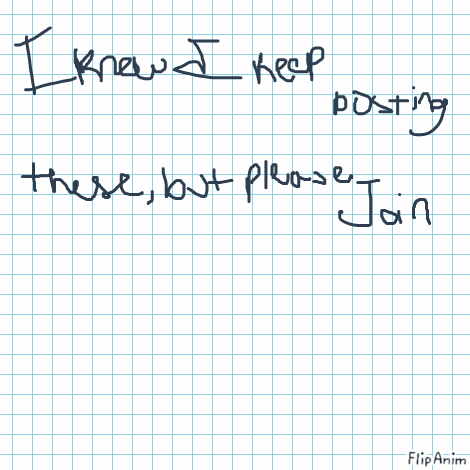 I knew I keep
posting
these, but please
Join
FlipAnim